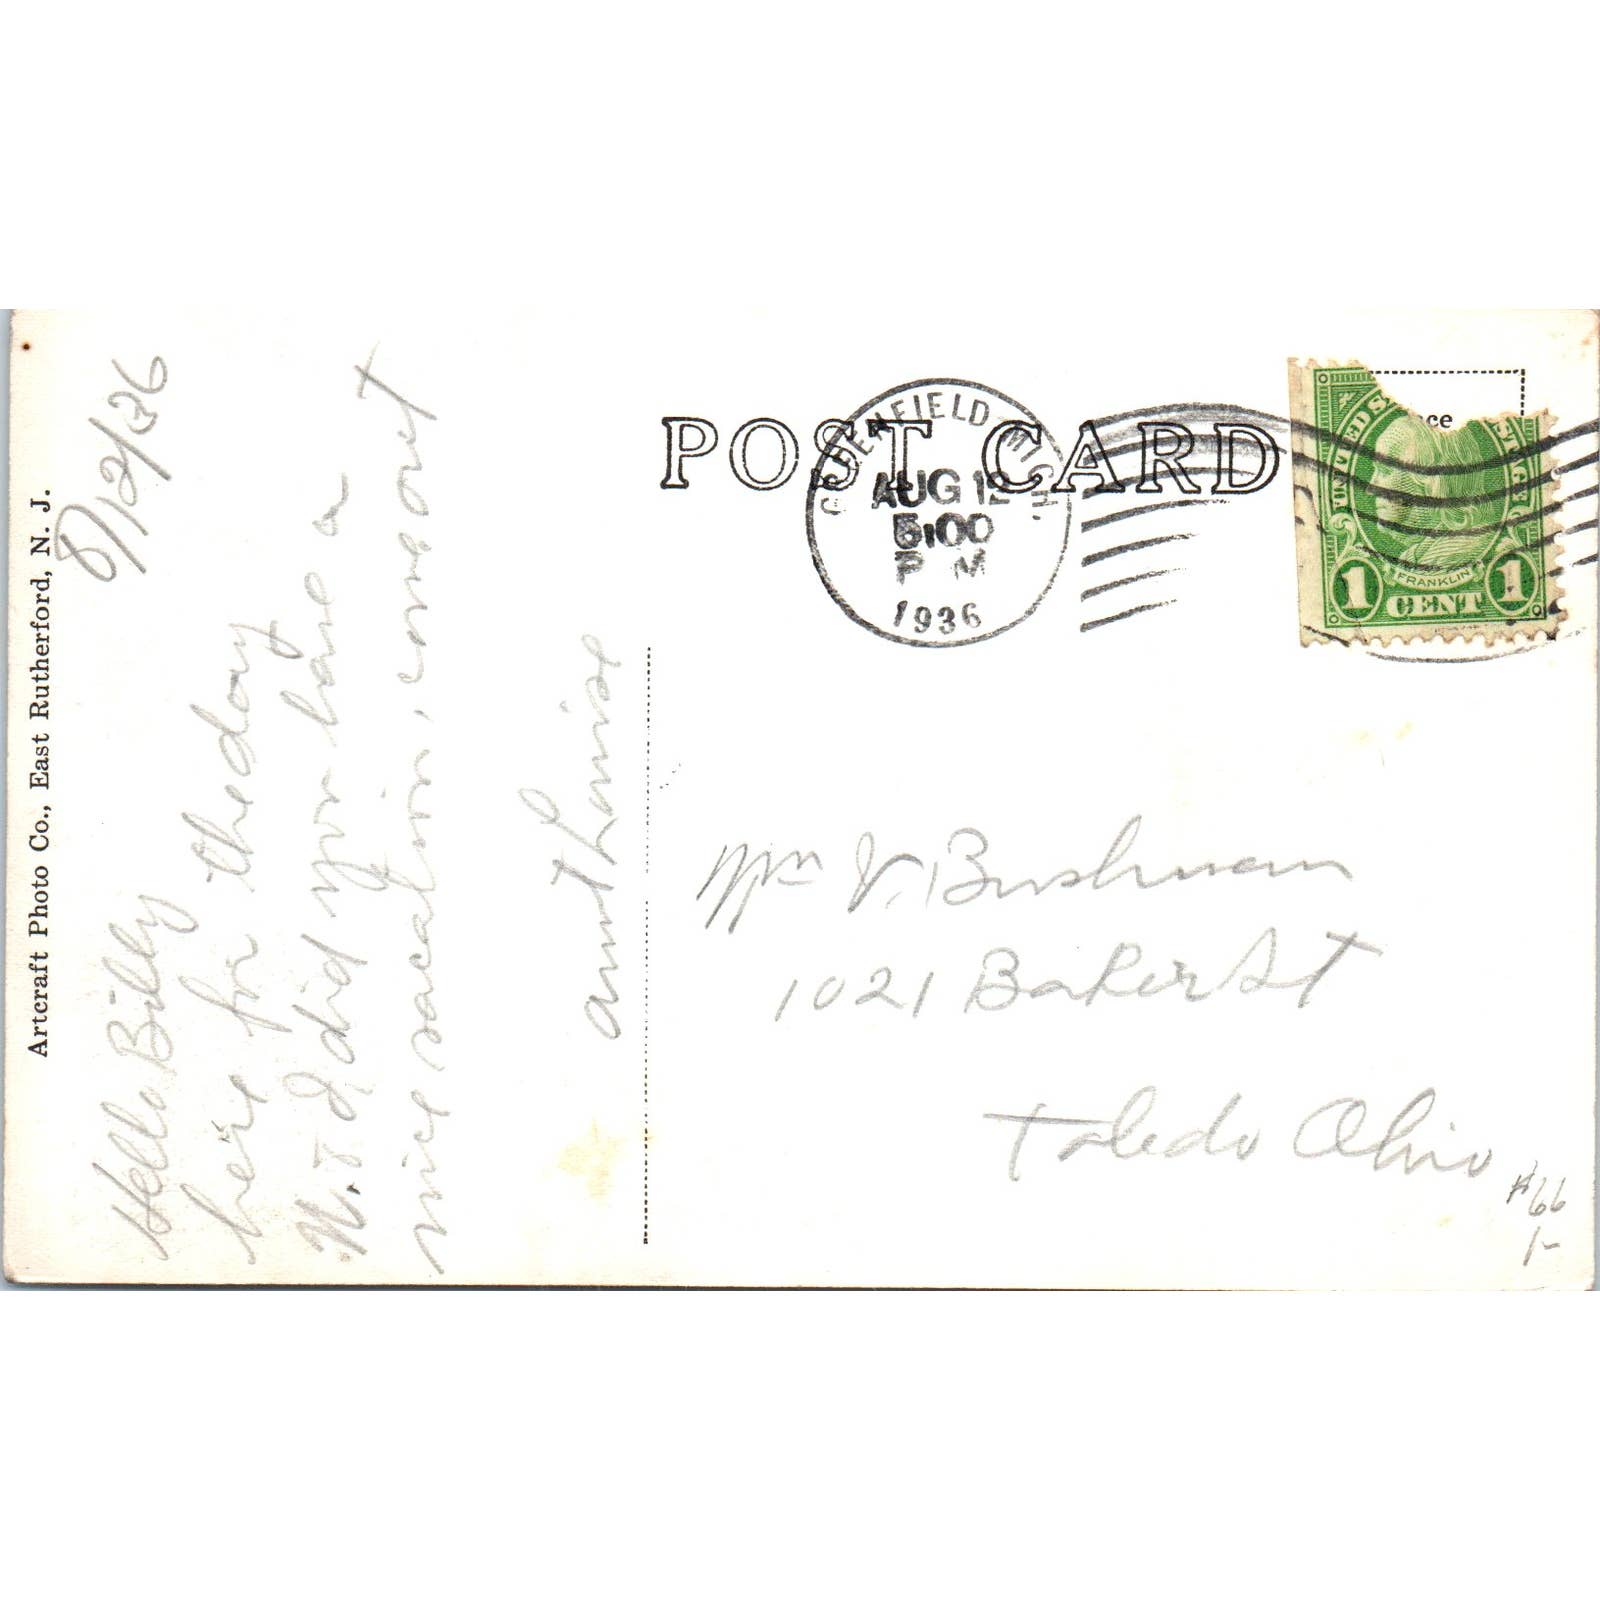 Artcraft Photo Co., East Rutherford, N. J.
8/12/36
Hello Billy
here for the day
N. & I did you have a
nice vacation, come out
aunt Louise
POST CARD
GREENFIELD MICH.
AUG 12
5:00
P M
1936
UNITED S
ce
FRANKLIN
1 CENT 1
V. Bushman
1021 Baker St
Toledo Ohio
#66
1-